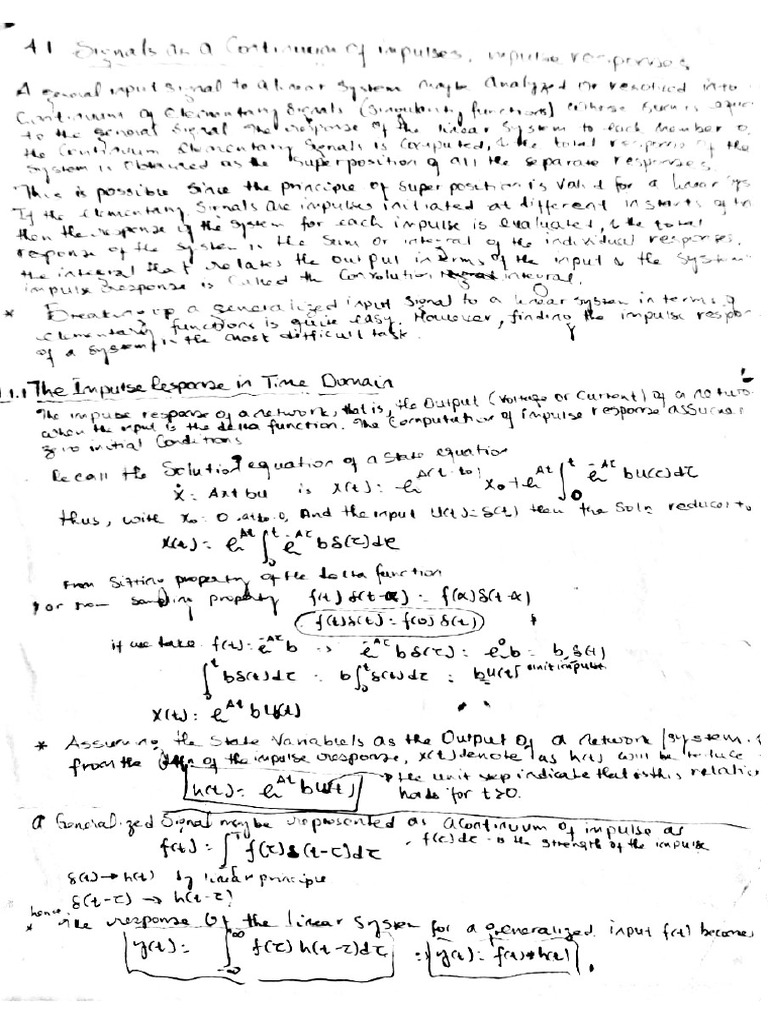 4.1 Signals as a Continuum of impulses, impulse responses
A general input signal to a linear system may be analyzed or resolved into
Continuum of Elementary Signals (Singularity functions) whose sum is equal
to the general signal. The response of the linear system to each member o
the Continuum Elementary Signals is computed, & the total response of the
System is obtained as the superposition of all the separate responses.
This is possible since the principle of superposition is valid for a linear sys
If the elementary signals are impulses initiated at different instants of tm
then the response of the system for each impulse is evaluated, & the total
response of the system is the sum or integral of the individual responses.
the integral that relates the output in terms of the input & the System
impulse response is called the Convolution integral.
* Breaking up a generalized input signal to a linear system in terms of
elementary functions is quite easy. However, finding the impulse respon
of a system is the most difficult task.
1.1.1 The Impulse Response in Time Domain
The impulse response of a network, that is, the Output (voltage or Current) of a netwo
when the input is the delta function. The Computation of impulse response assumes
zero initial Conditions
Recall the Solution equation of a state equation
ẋ = Ax + bu is x(t) = e^{A(t-t₀)} x₀ + e^{At} ∫₀^t e^{-Aτ} bu(τ)dτ
thus, with x₀ = 0, at t=0, And the input U(t) = δ(t) then the Soln reduces to
x(t) = e^{At} ∫₀^t e^{-Aτ} bδ(τ)dτ
From Sifting property of the delta function
or from sampling property f(t)δ(t-α) = f(α)δ(t-α)
f(t)δ(t) = f(0)δ(t)
if we take f(t) = e^{-Aτ}b => e^{-Aτ}bδ(τ) = e⁰b = b δ(t)
∫₀^t bδ(τ)dτ = b∫₀^t δ(τ)dτ = bu(t) unit impulse
x(t) = e^{At} bu(t)
* Assuming the State Variables as the Output of a network/system
from the of the impulse response, x(t) denote as h(t) will be
h(t) = e^{At} bu(t) the unit step indicate that this relatio
holds for t>0.
A Generalized Signal may be represented as a Continuum of impulse as
f(t) = ∫ f(τ)δ(t-τ)dτ , f(τ)dτ is the strength of the impulse
δ(t) → h(t) by linear principle
δ(t-τ) → h(t-τ)
hence
* The response of the linear System for a generalized input f(t) becomes
y(t) = ∫_{-∞}^{∞} f(τ) h(t-τ)dτ => y(t) = f(t)*h(t) .